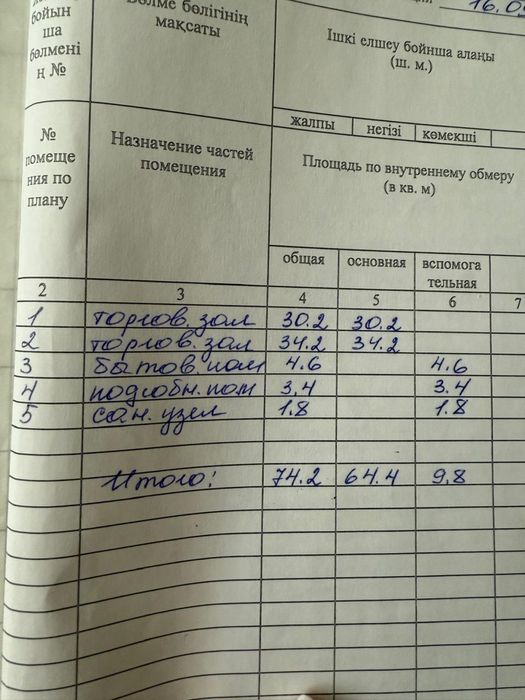 16.0
бойын
ша
бөлмені
ң №
Бөлме бөлігінің
мақсаты
Ішкі елшеу бойнша алаңы
(ш. м.)
жалпы негізі көмекші
№
помеще
ния по
плану
Назначение частей
помещения
Площадь по внутреннему обмеру
(в кв. м)
общая основная вспомога
тельная
2 3 4 5 6 7
1 торгов. зал 30.2 30.2
2 торгов. зал 34.2 34.2
3 бытов. пом 4.6 4.6
4 подсобн. пом 3.4 3.4
5 сан. узел 1.8 1.8
Итого: 74.2 64.4 9.8